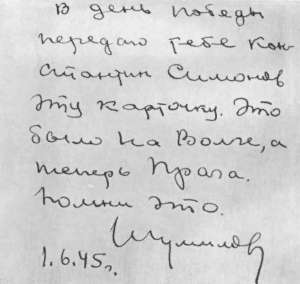 В день победы
передаю тебе Кон-
стантин Симонов
эту карточку. Это
было на Волге, а
теперь Прага.
Помни это.
Шумилов
1.6.45 г.